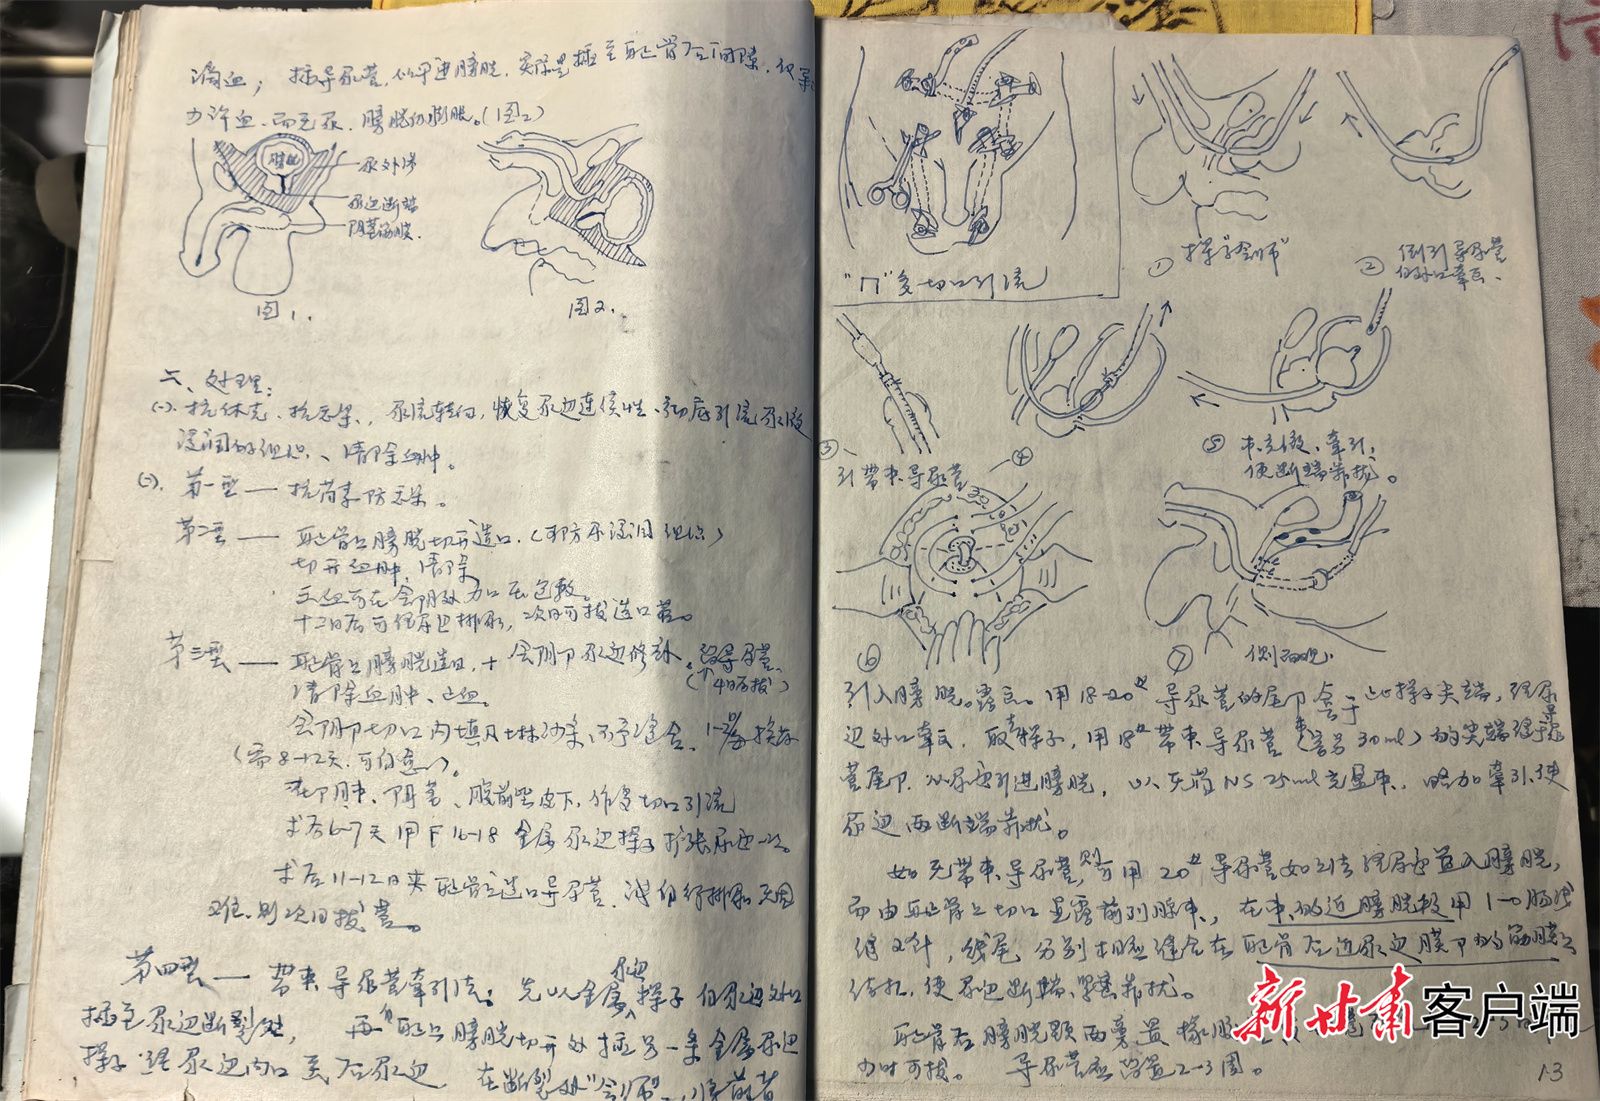 滴血；插导尿管，似乎进膀胱，实际是插至耻骨后间隙，仅导
少许血，而无尿，膀胱仍膨胀。（图2）
尿外渗
尿道断端
阴茎筋膜
图1.
图2.
六、处理：
(一)、抗休克、抗感染，尿流转向，恢复尿道连续性、彻底引流尿液
浸润的组织、清除血肿。
(二)、第一型——抗菌素防感染。
第二型——耻骨上膀胱切开造口，（即防尿浸润组织）
切开血肿，清除
会阴处加压包敷。
十二日后可经尿道排尿，次日可拔造口管。
第三型——耻骨上膀胱造口＋会阴部尿道修补，留导尿管、
清除血肿、止血。
会阴部切口内填凡士林纱条，不予缝合，1-2日每换
（需8-12天，可自愈）。
在阴囊、阴茎、腹前壁皮下，作多切口引流
术后6-7天用F16-18金属尿道探子扩张尿道一次。
术后11-12日夹耻骨上造口导尿管，试自行排尿无困
难，则次日拔管。
第四型——带囊导尿管牵引法：先以金属尿道探子自尿道外口
插至尿道断裂处，再自耻上膀胱切开处插另一条金属尿道
探子经尿道内口至后尿道，在断裂处“会师”，将前者
“门”多切口引流
① 探子“会师”
② 倒引导尿管
自外口牵出、
③、
引带囊导尿管
④
⑤ 囊充液、牵引，
使断端靠拢。
⑥
⑦ 侧面观
引入膀胱。露出。用18-20#导尿管的尾部套于此探子尖端，经尿
道外口牵出，取去探子，用18#带囊导尿管（容量30ml）的尖端缝于导尿
管尾部，从尿道引进膀胱，以无菌NS 25ml充盈囊，略加牵引，使
尿道两断端靠拢。
如无带囊导尿管，则可用20#导尿管如上法经尿道置入膀胱，
而由耻骨上切口显露前列腺囊，在囊的近膀胱极用1-0肠线
缝2针，线尾分别相应缝合在耻骨后近尿道膜部的筋膜上
结扎，使尿道断端紧密靠拢。
耻骨后膀胱颈两旁置橡胶
少时可拔。导尿管应留置2-3周。
13
新甘肃客户端